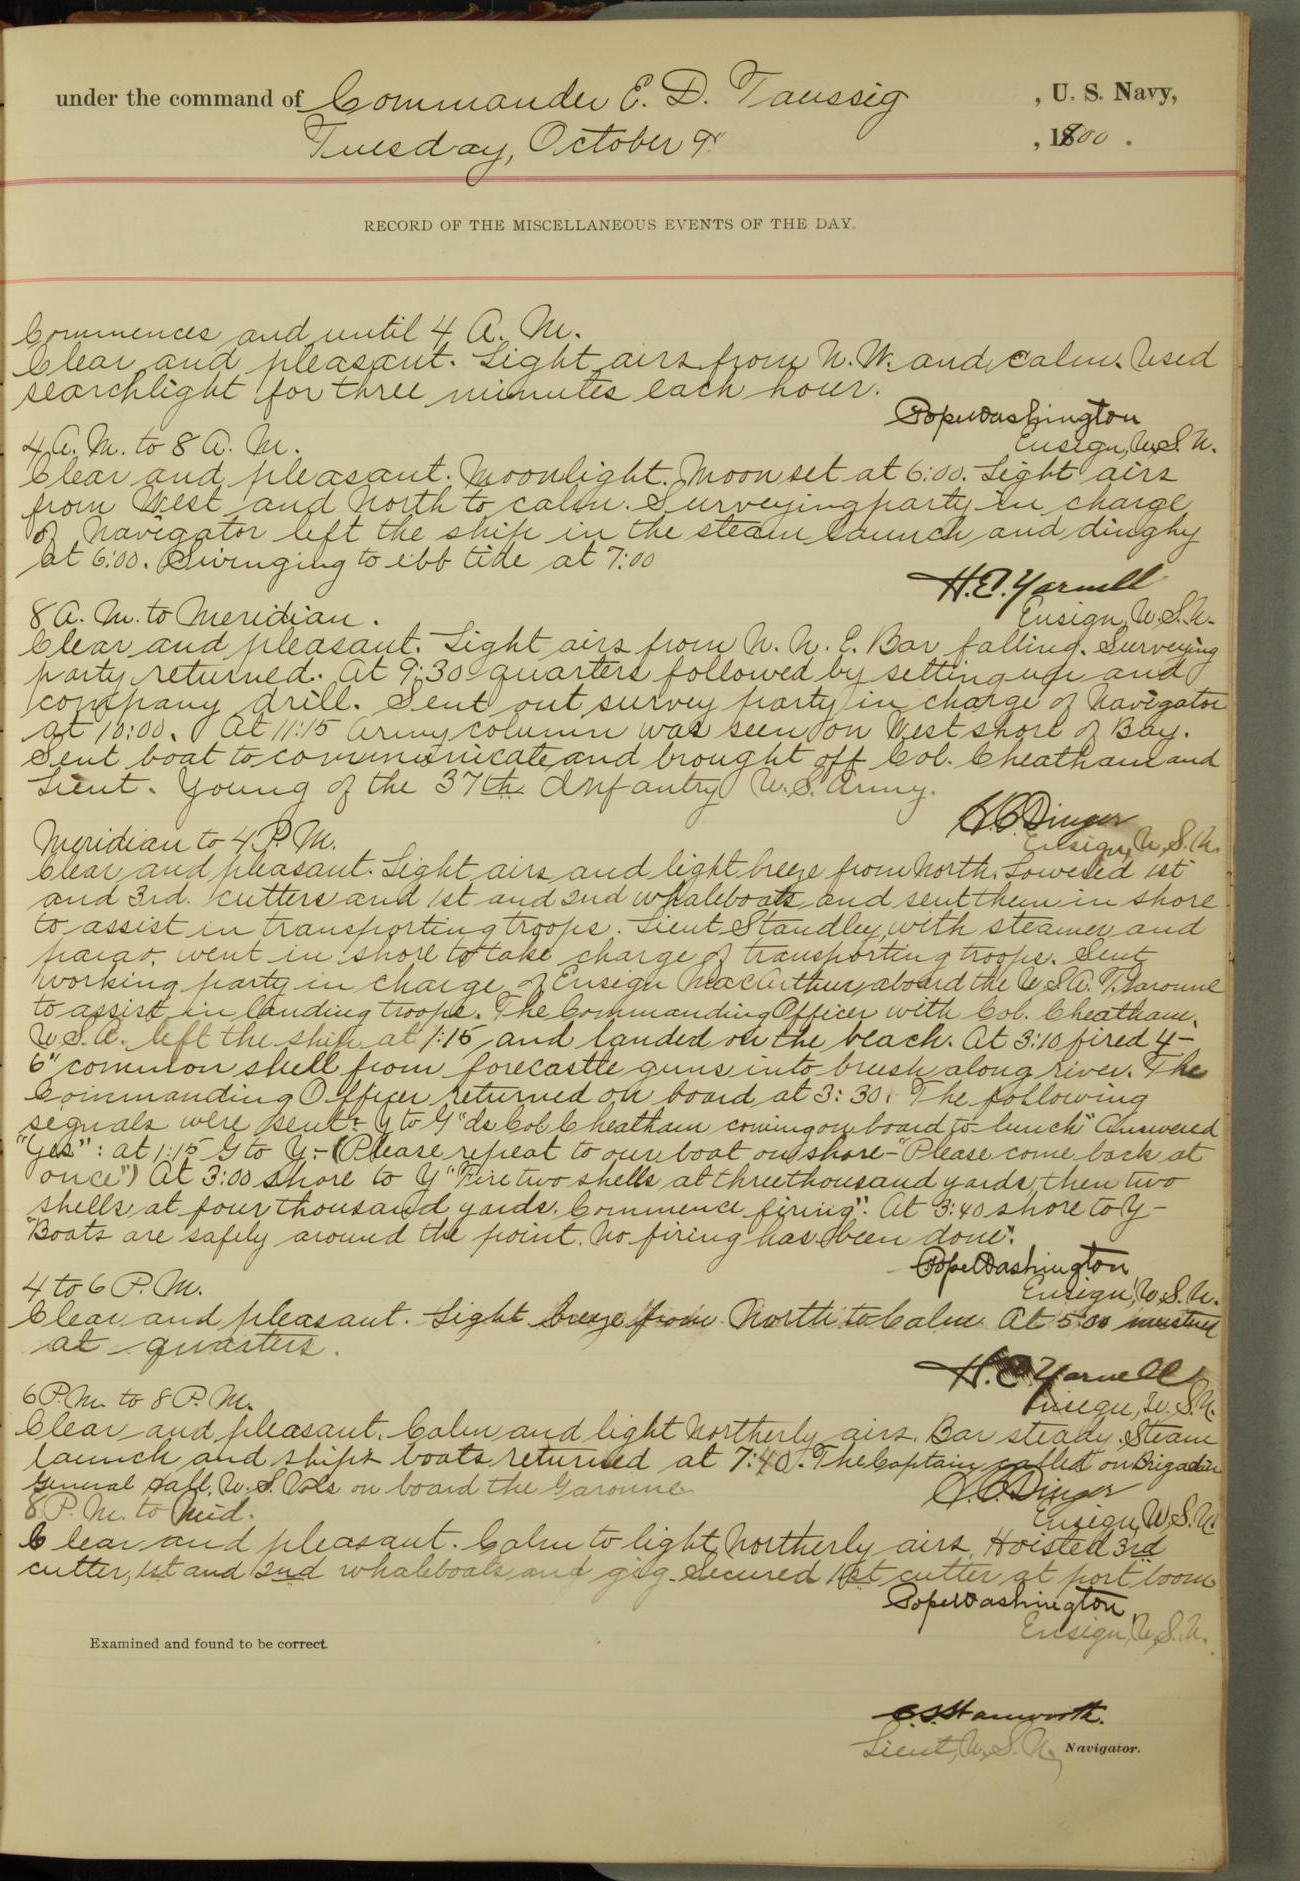 under the command of Commander E. D. Taussig , U. S. Navy,
Tuesday, October 9" , 1900 .
RECORD OF THE MISCELLANEOUS EVENTS OF THE DAY.
Commences and until 4 A. M.
Clear and pleasant. Light airs from N. W. and calm. Used
searchlight for three minutes each hour.
Pope Washington
Ensign, U. S. N.
4 A. M. to 8 A. M.
Clear and pleasant. Moonlight. Moon set at 6:00. Light airs
from West and North to calm. Surveying party in charge
of Navigator left the ship in the steam launch and dinghy
at 6:00. Swinging to ebb tide at 7:00
H. E. Yarnell
Ensign, U. S. N.
8 A. M. to Meridian.
Clear and pleasant. Light airs from N. N. E. Bar falling. Surveying
party returned. At 9:30 quarters followed by setting up and
company drill. Sent out survey party in charge of Navigator
at 10:00. At 11:15 Army column was seen on West shore of Bay.
Sent boat to communicate and brought off Col. Cheatham and
Lieut. Young of the 37th Infantry U. S. Army.
H. C. Dinger
Ensign, U. S. N.
Meridian to 4 P. M.
Clear and pleasant. Light airs and light breeze from North. Lowered 1st
and 3rd. cutters and 1st and 2nd whaleboats and sent them in shore
to assist in transporting troops. Lieut Standley, with steamer and
went in shore to take charge of transporting troops. Sent
working party in charge of Ensign MacArthur, aboard the U. S. A. T. Garonne
to assist in landing troops. The Commanding Officer with Col. Cheatham,
U. S. A. left the ship at 1:15, and landed on the beach. At 3:10 fired 4-
6" common shell from forecastle guns into brush along river. The
Commanding Officer returned on board at 3:30. The following
signals were sent:- Y to G "Is Col Cheatham coming on board to lunch" Answered
"Yes": at 1:15 G to Y:- (Please repeat to our boat on shore - "Please come back at
once") At 3:00 shore to Y "Fire two shells at three thousand yards, then two
shells at four thousand yards. Commence firing". At 3:40 shore to Y -
"Boats are safely around the point. No firing has been done".
Pope Washington
Ensign, U. S. N.
4 to 6 P. M.
Clear and pleasant. Light breeze from North to Calm. At 5:00 mustered
at quarters.
H. E. Yarnell
Ensign, U. S. N.
6 P. M. to 8 P. M.
Clear and pleasant. Calm and light Northerly airs. Bar steady. Steam
launch and ship's boats returned at 7:40. The Captain called on Brigadier
General Hall, U. S. Vols on board the Garonne.
H. C. Dinger
Ensign, U. S. N.
8 P. M. to Mid.
Clear and pleasant. Calm to light Northerly airs. Hoisted 3rd
cutter, 1st and 2nd whaleboats and gig. Secured 1st cutter at port boom
Pope Washington,
Ensign, U. S. N.
Examined and found to be correct.
C. S. Stanworth.
Lieut, U. S. N., Navigator.